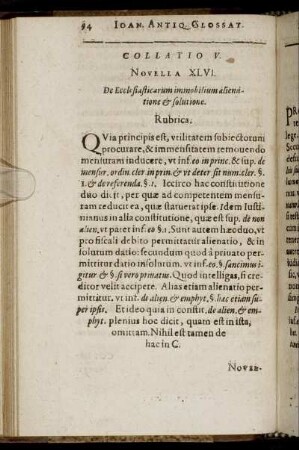 94 IOAN. ANTIQ. GLOSSAT.
COLLATIO V.
NOVELLA XLVI.
De Ecclesiasticarum immobilium aliena-
tione & solutione.
Rubrica.
QVia principis est, vtilitatem subiectorum
procurare, & immensitatem remouendo
mensuram inducere, vt inf. eo in princ. & sup. de
mensur. ordin. cler. in prin. & vt deter sit num. cler. §.
1. & de referenda. §. 1. Iccirco hac constitutione
duo dicit, per quæ ad competentem mensu-
ram reducit ea, quæ statuerat ipse. Idem Iusti-
nianus in alia constitutione, quæ est sup. de non
alien. vt paret inf. eo §. 1. Sunt autem hæc duo, vt
pro fiscali debito permittatur alienatio, & in
solutum datio: secundum quod à priuato per-
mittitur datio in solutum. vt inf. eo. §. sancimus i-
gitur & §. si vero priuatus. Quod intelligas, si cre-
ditor velit accipere. Alias etiam alienatio per-
mittitur, vt inf. de alien. & emphyt. §. hac etiam su-
per ipsis. Et ideo quia in constit. de alien. & em-
phyt. plenius hoc dicit, quam est in ista,
omittam. Nihil est tamen de
hac in C.
NOVEL-